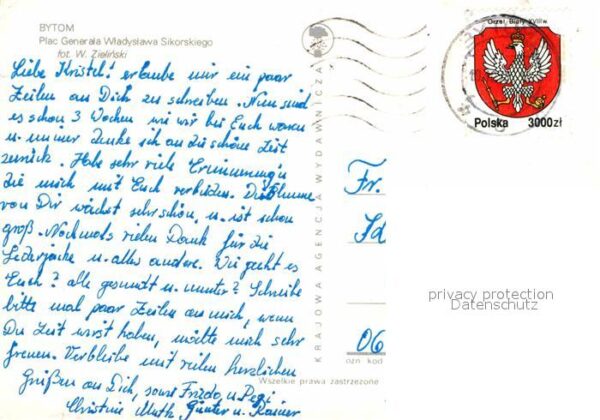 BYTOM
Plac Generała Władysława Sikorskiego
fot. W. Zieliński
Liebe Kristel! erlaube mir ein paar
Zeilen an Dich zu schreiben. Nun sind
es schon 3 Wochen wie wir bei Euch waren
u. immer denke ich an die schöne Zeit
zurück. Habe sehr viele Erinnerung'n
die mich mit Euch verbinden. Die Blume
von Dir wächst sehr schön, u. ist schon
groß. Nochmals vielen Dank für die
Lederjacke u. alles andere. Wie geht es
Euch? alle gesund u. munter? Schreibe
bitte mal paar Zeilen an mich, wenn
Du Zeit wirst haben, würde mich sehr
freuen. Verbleibe mit vielen herzlichen
Grüßen an Dich, sowie Frido, u.
Christine Muth, Günter u. Rainer
KRAJOWA AGENCJA WYDAWNICZA
Orzeł Biały XVIII w.
Polska 3000zł
Fr.
Id
06
ozn kod
Wszelkie prawa zastrzeżone
privacy protection
Datenschutz